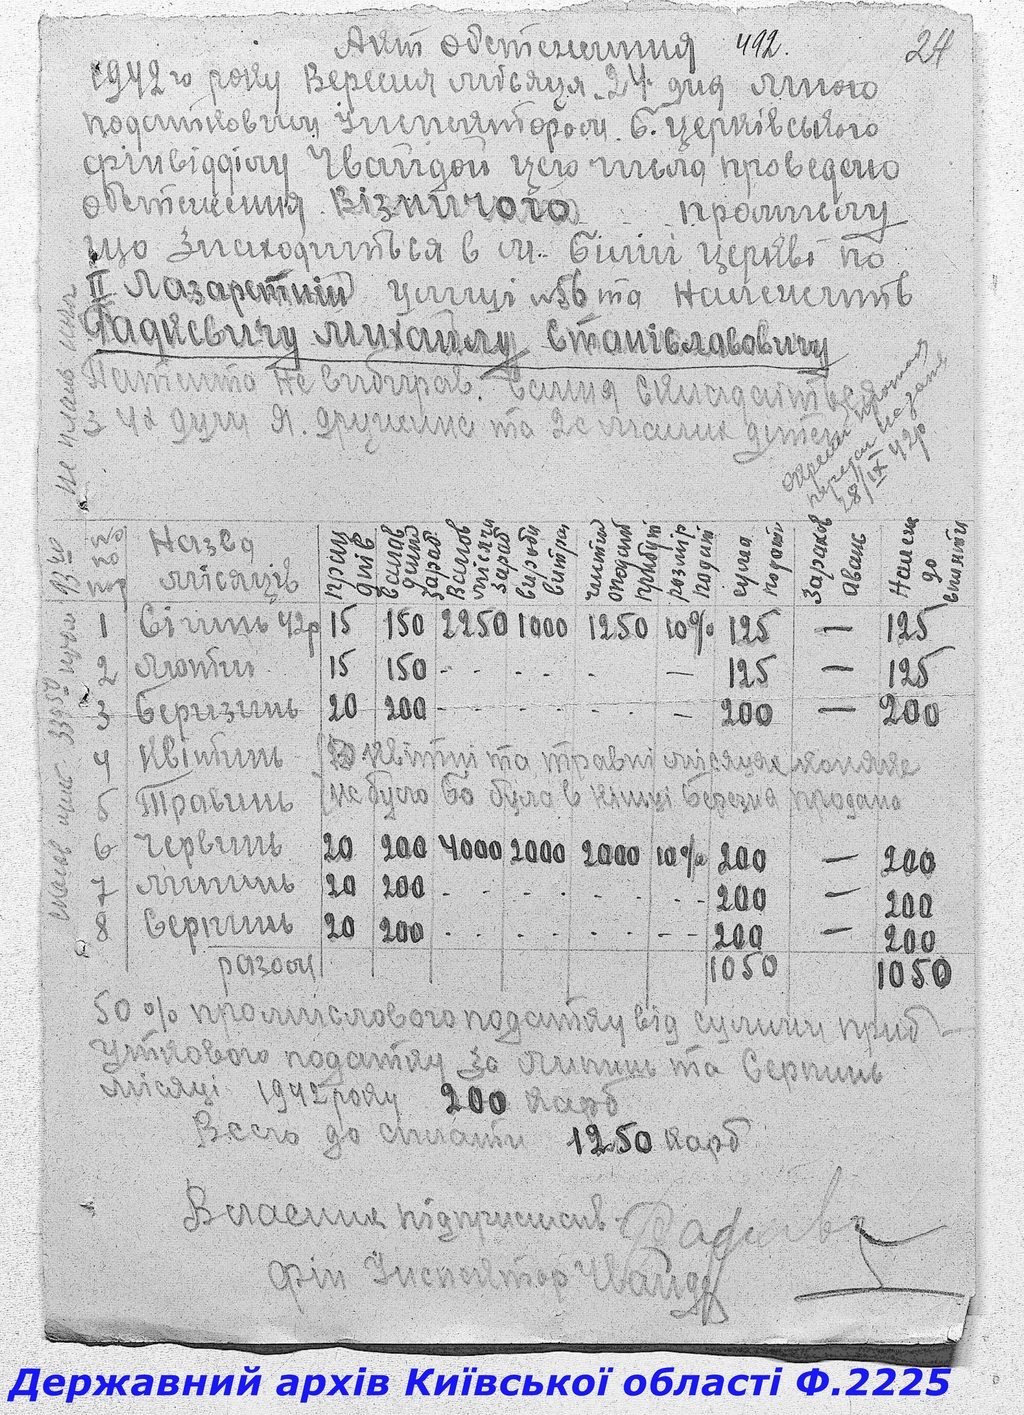 Акт обстеження 492. 24
1942го року Вересня місяця 24 дня мною
податковим Інспектором Б. церківського
фінвідділу Чвайдой цего числа проведено
обстеження Візничого промислу
що Знаходиться в м. Білій церкві по
II Лазаретній улиці №56 та Належить
Радкевичу Михайлу Станіславовичу
Патента Не вибирав. Семия Складається
з 4х душ Я. дружина та 2є малих дітей
28/IX 42р
№ по пор
Назва місяців
Прац днів
Валов денн зараб
Валов місячн зараб
вироби витра
чистий подат прибут
розмір подат
сума подат
Зарахов аванс
Належ до вишати
1 Січинь 42р 15 150 2250 1000 1250 10% 125 — 125
2 Лютий 15 150 - - - - — 125 — 125
3 Березинь 20 200 - - - - — 200 — 200
4 Квітинь В Квітні та травні місяцях коняке
5 Травинь не було бо була в кінці березня продана
6 Червинь 20 200 4000 2000 2000 10% 200 — 200
7 Липинь 20 200 - - - - - 200 — 200
8 Серпинь 20 200 - - - - - 200 — 200
разом 1050 1050
50% промислового податку від сумини приб
уткового податку За Липинь та Серпинь
місяці 1942 року 200 карб
Всего до сплати 1250 карб
Власник підприємств Радкевич
Фін Інспектор Чвайда
Державний архів Київської області Ф.2225